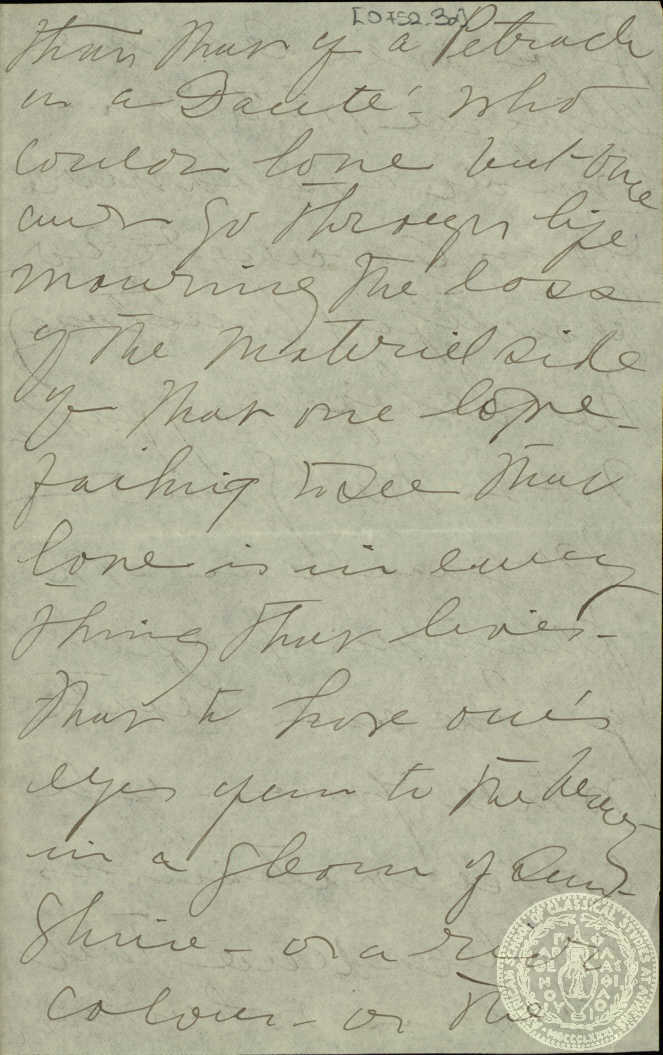 [0752.3d]
than that of a Petrach
or a Dante'- who
could love but once
and go through life
mourning the loss
of the material side
of that one love -
failing to see that
love is in every
thing that lives -
that to have one's
eyes open to the beauty
in a gleam of sun-
shine - or a
colour - or the
AMERICAN SCHOOL OF CLASSICAL STUDIES AT ATHENS
MDCCCLXXXI